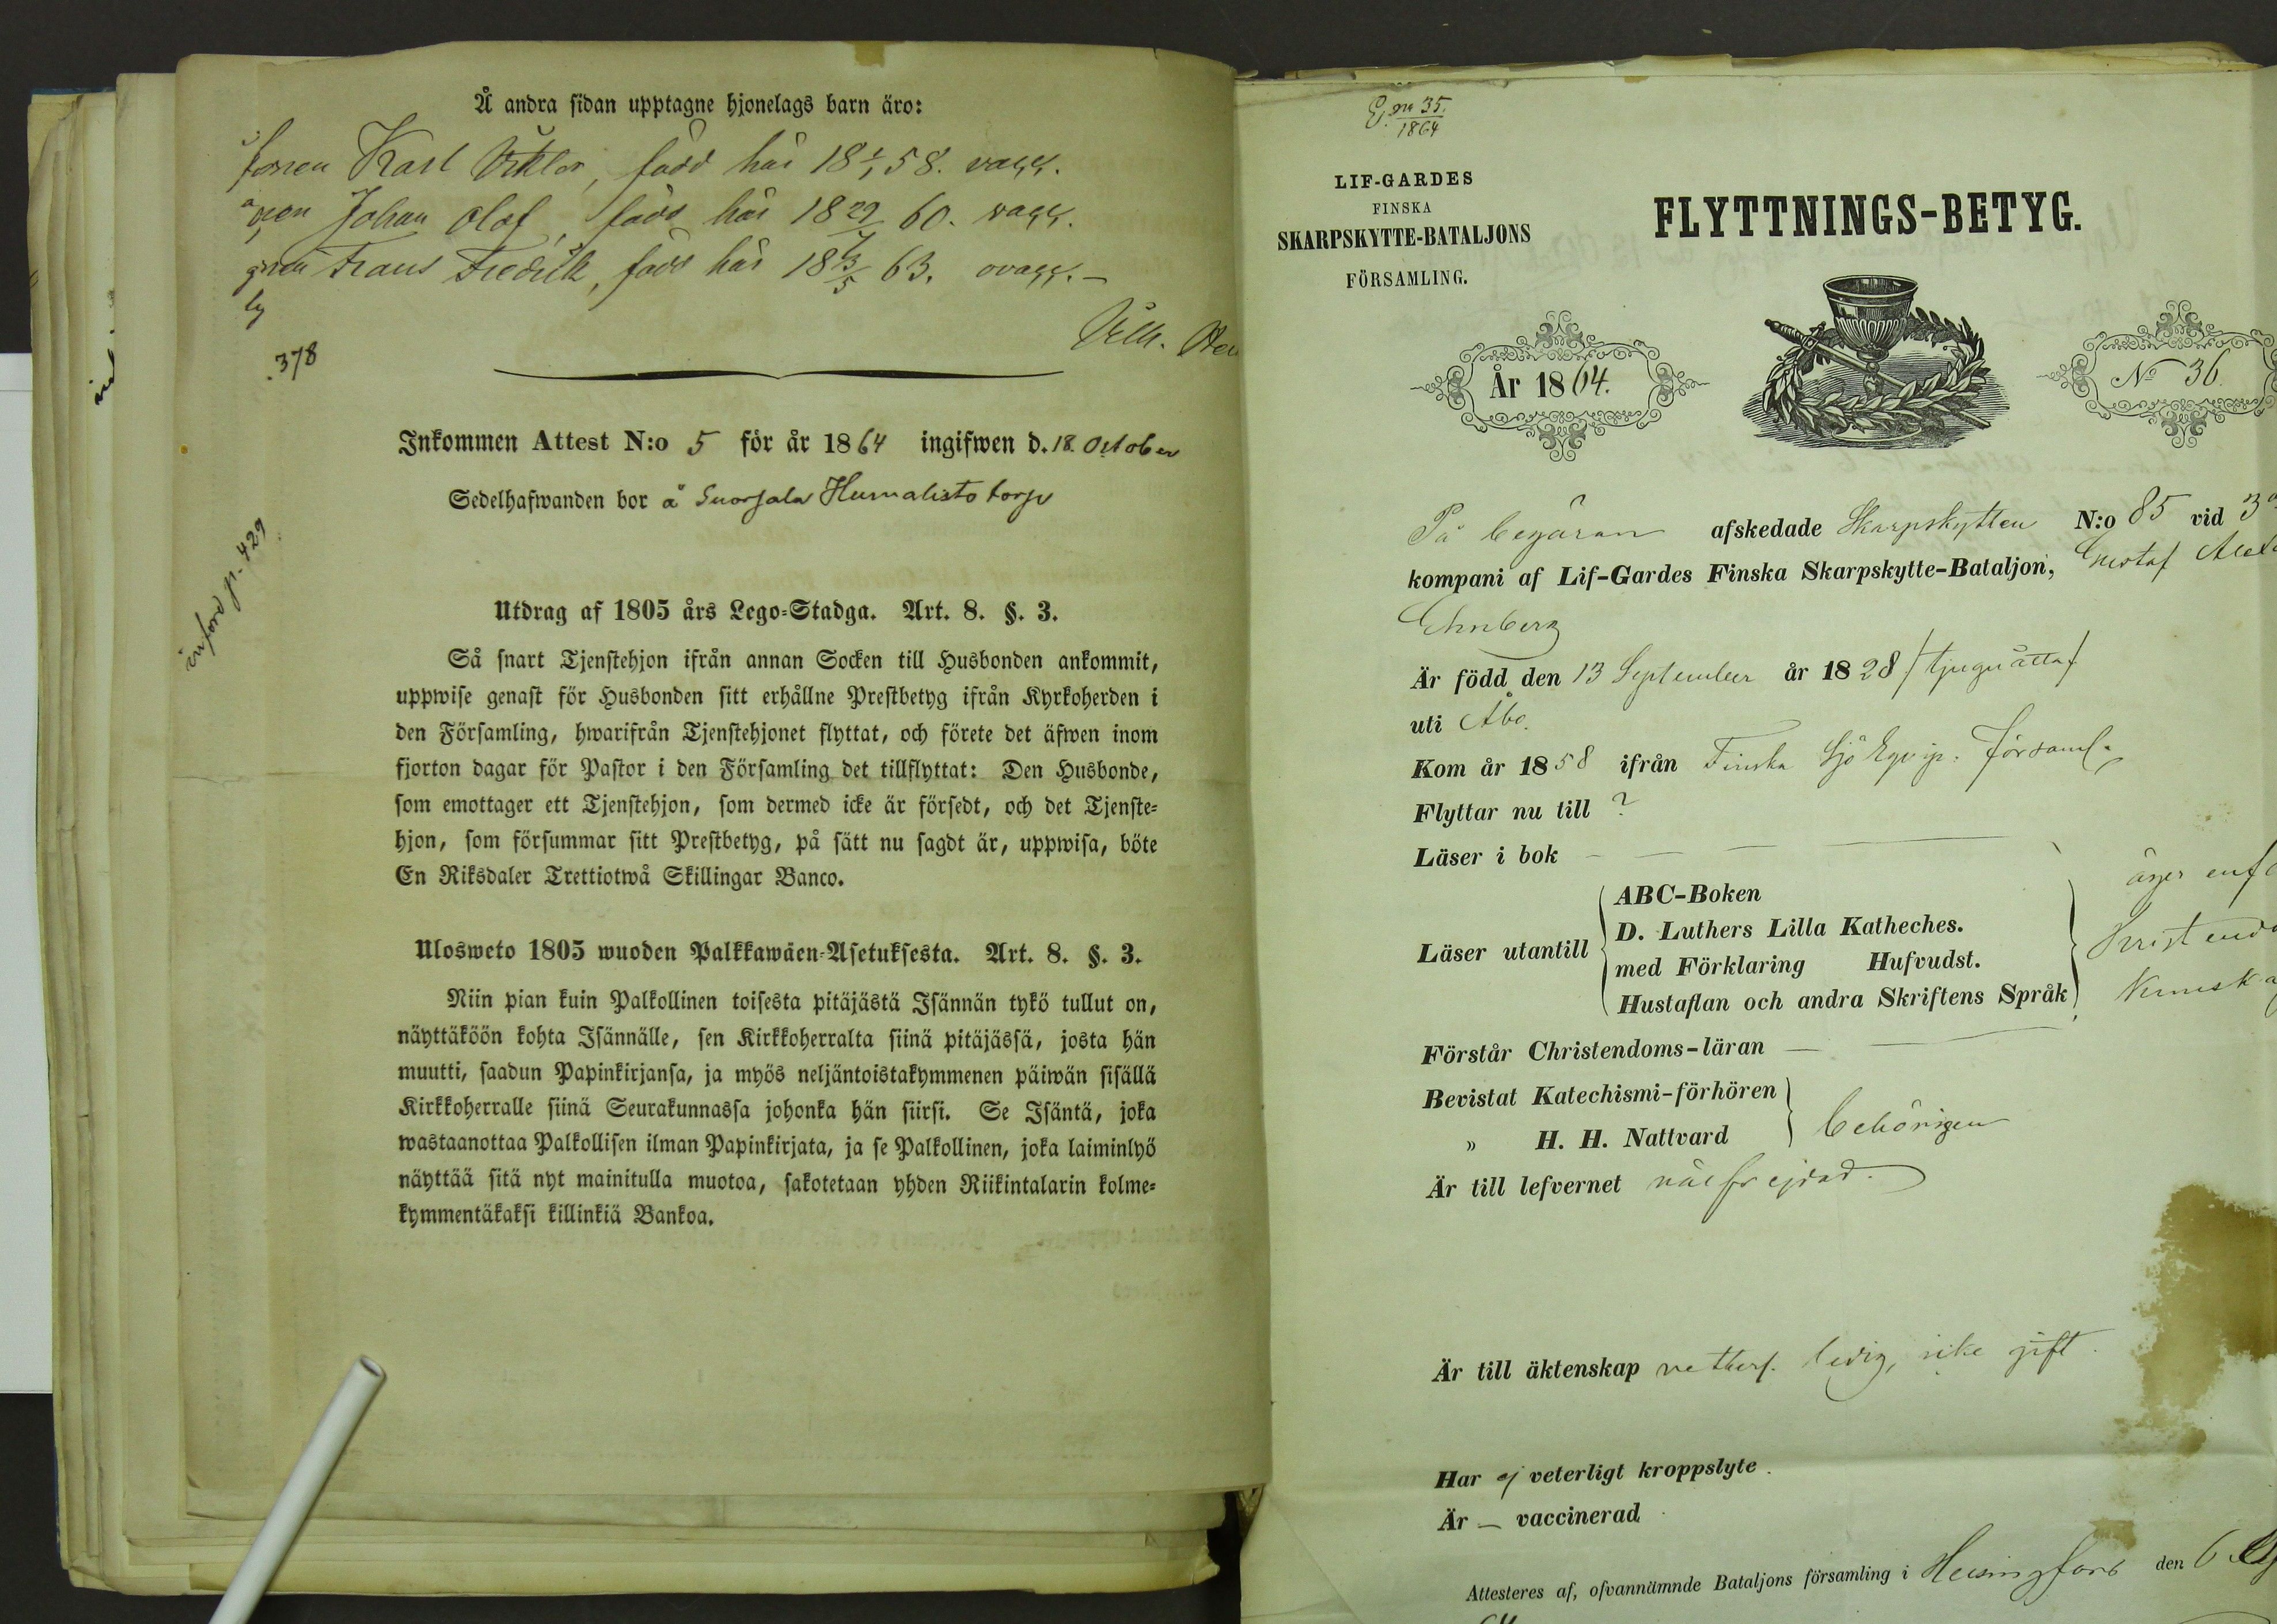 Å andra sidan upptagne hjonelags barn äro:
sonen Karl Viktor, född här 18 1/1 58. vacc.
Johan Olof, född här 18 29/7 60. vacc.
Frans Fredrik, född här 18 3/5 63. ovacc. —
Vilh.
378
Inkommen Attest N:o 5 för år 1864 ingifwen d. 18. October
Sedelhafwanden bor å Suorsala Humalisto torp
införd p. 429
Utdrag af 1805 års Lego-Stadga. Art. 8. §. 3.
Så snart Tjenstehjon ifrån annan Socken till Husbonden ankommit,
uppwise genast för Husbonden sitt erhållne Prestbetyg ifrån Kyrkoherden i
den Församling, hwarifrån Tjenstehjonet flyttat, och förete det äfwen inom
fjorton dagar för Pastor i den Församling det tillflyttat: Den Husbonde,
som emottager ett Tjenstehjon, som dermed icke är försedt, och det Tjenste-
hjon, som försummar sitt Prestbetyg, på sätt nu sagdt är, uppwisa, böte
En Riksdaler Trettiotwå Skillingar Banco.
Ulosweto 1805 wuoden Palkkawäen-Asetuksesta. Art. 8. §. 3.
Niin pian kuin Palkollinen toisesta pitäjästä Isännän tykö tullut on,
näyttäköön kohta Isännälle, sen Kirkkoherralta siinä pitäjässä, josta hän
muutti, saadun Papinkirjansa, ja myös neljäntoistakymmenen päiwän sisällä
Kirkkoherralle siinä Seurakunnassa johonka hän siirsi. Se Isäntä, joka
wastaanottaa Palkollisen ilman Papinkirjata, ja se Palkollinen, joka laiminlyö
näyttää sitä nyt mainitulla muotoa, sakotetaan yhden Riikintalarin kolme-
kymmentäkaksi killinkiä Bankoa.
35.
1864
LIF-GARDES
FINSKA
SKARPSKYTTE-BATALJONS
FÖRSAMLING.
FLYTTNINGS-BETYG.
År 1864.
No 36.
På begäran afskedade Skarpskytten N:o 85 vid 3
kompani af Lif-Gardes Finska Skarpskytte-Bataljon, Gustaf
Ehnberg
Är född den 13 September år 1828 / tjuguåtta /
uti Åbo.
Kom år 1858 ifrån Finska Sjö Eqvip. Församl.
Flyttar nu till ?
Läser i bok — — —
Läser utantill
ABC-Boken
D. Luthers Lilla Katheches.
med Förklaring Hufvudst.
Hustaflan och andra Skriftens Språk
äger
Förstår Christendoms-läran — —
Bevistat Katechismi-förhören
„ H. H. Nattvard
behörigen
Är till lefvernet välfrejdad.
Är till äktenskap vetterl. ledig, icke gift.
Har ej veterligt kroppslyte.
Är — vaccinerad
Attesteres af, ofvannämnde Bataljons församling i Helsingfors den 6